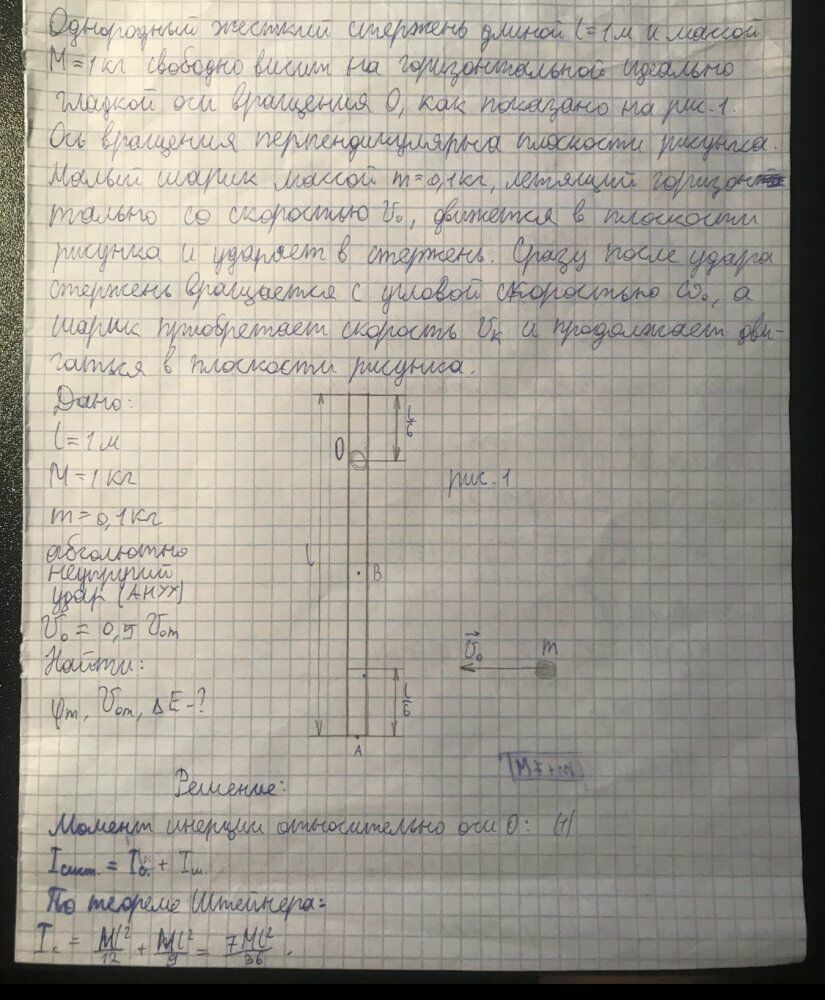 Однородный жесткий стержень длиной l=1м и массой
M=1кг свободно висит на горизонтальной идеально
гладкой оси вращения O, как показано на рис.1.
Ось вращения перпендикулярна плоскости рисунка.
Малый шарик массой m=0,1кг, летящий горизон-
тально со скоростью V₀, движется в плоскости
рисунка и ударяет в стержень. Сразу после удара
стержень вращается с угловой скоростью ω₀, а
шарик приобретает скорость Vк и продолжает дви-
гаться в плоскости рисунка.
Дано:
l=1м
M=1кг
m=0,1кг
абсолютно
неупругий
удар (АНУУ)
V₀ = 0,5 V₀m
Найти:
φm, V₀m, ΔE-?
l/6
O
рис.1
l
B
V₀
m
l/6
A
Решение:
Момент инерции относительно оси O: (1)
Iсист. = Iс. + Iш.
По теореме Штейнера:
Iс = Ml²/12 + Ml²/9 = 7Ml²/36.